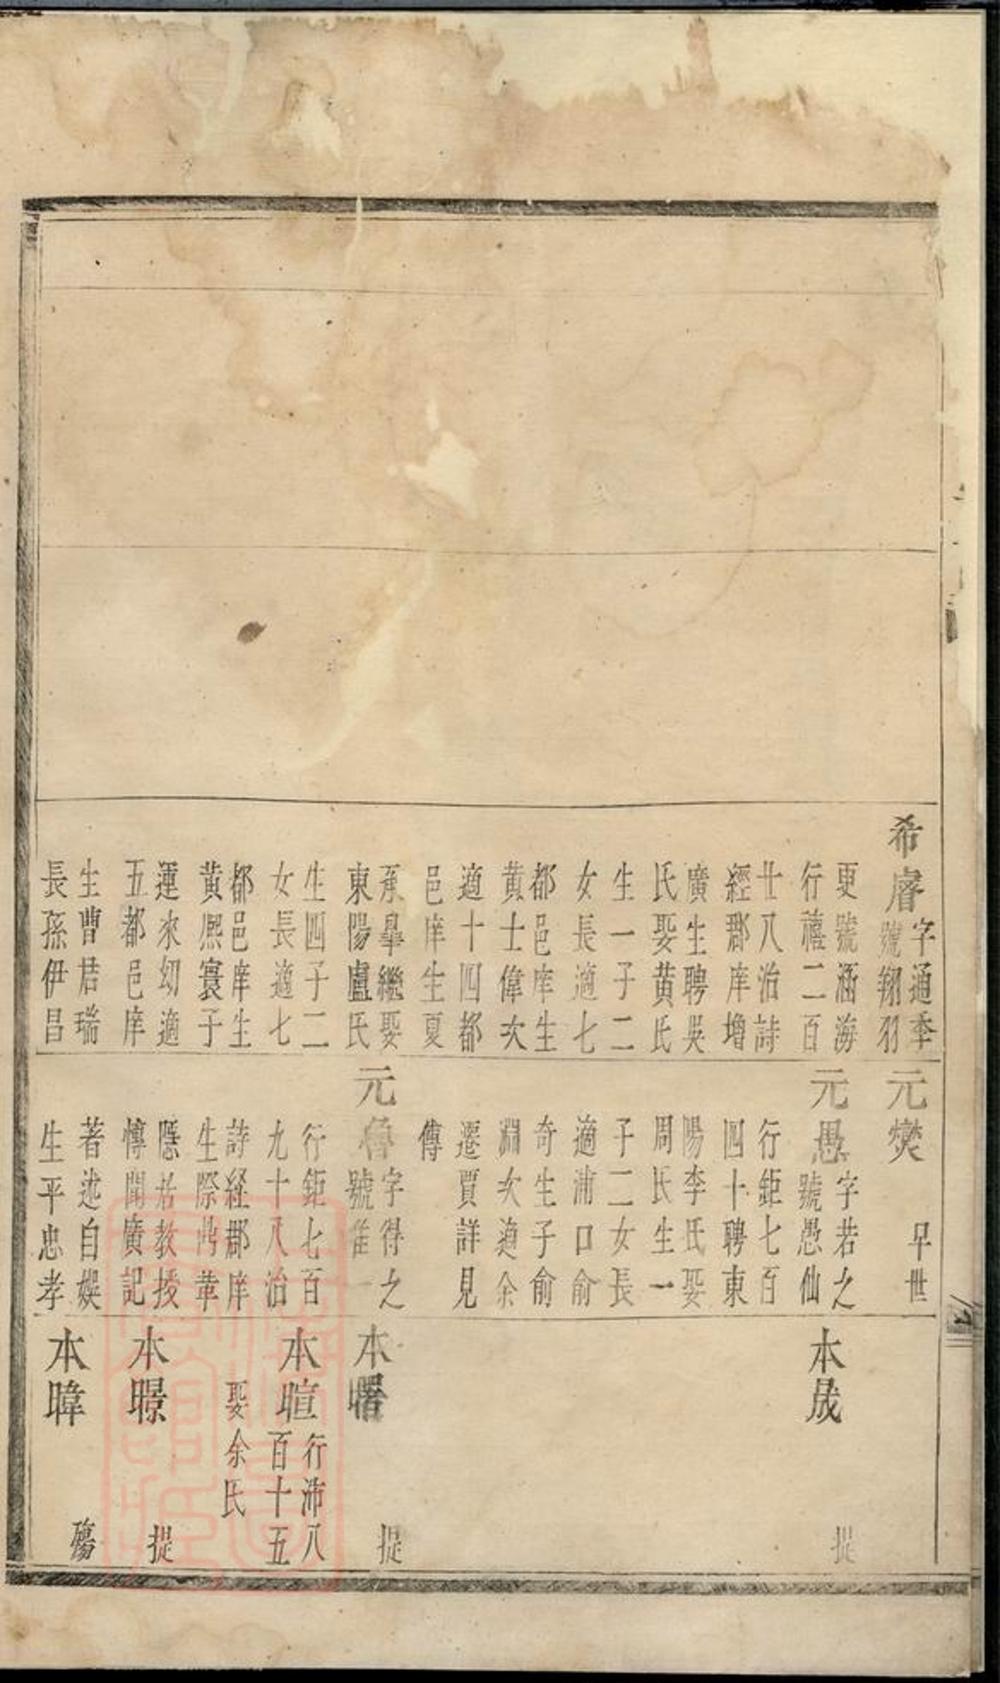 希睿
字通季
號翔羽
更號涵海
行禧二百
廿八治詩
經郡庠增
廣生聘吳
氏娶黄氏
生一子二
女長適七
都邑庠生
黄士偉次
適十四都
邑庠生夏
承皐繼娶
東陽盧氏
生四子二
女長適七
都邑庠生
黄熈寰子
運來幼適
五都邑庠
生曹君瑞
長孫伊昌
元爕
早世
元愚
字若之
號愚仙
行鉅七百
四十聘東
陽李氏娶
周氏生一
子二女長
適浦口俞
奇生子俞
淵次適余
遷賈詳見
傳
元魯
字得之
號隹一
行鉅七百
九十八治
詩経郡庠
生際鼎革
隱居教授
慱聞廣記
著述自娱
生平忠孝
本晟
提
本曙
提
本暄
行沛八
百十五
娶余氏
本暻
提
本暐
殤